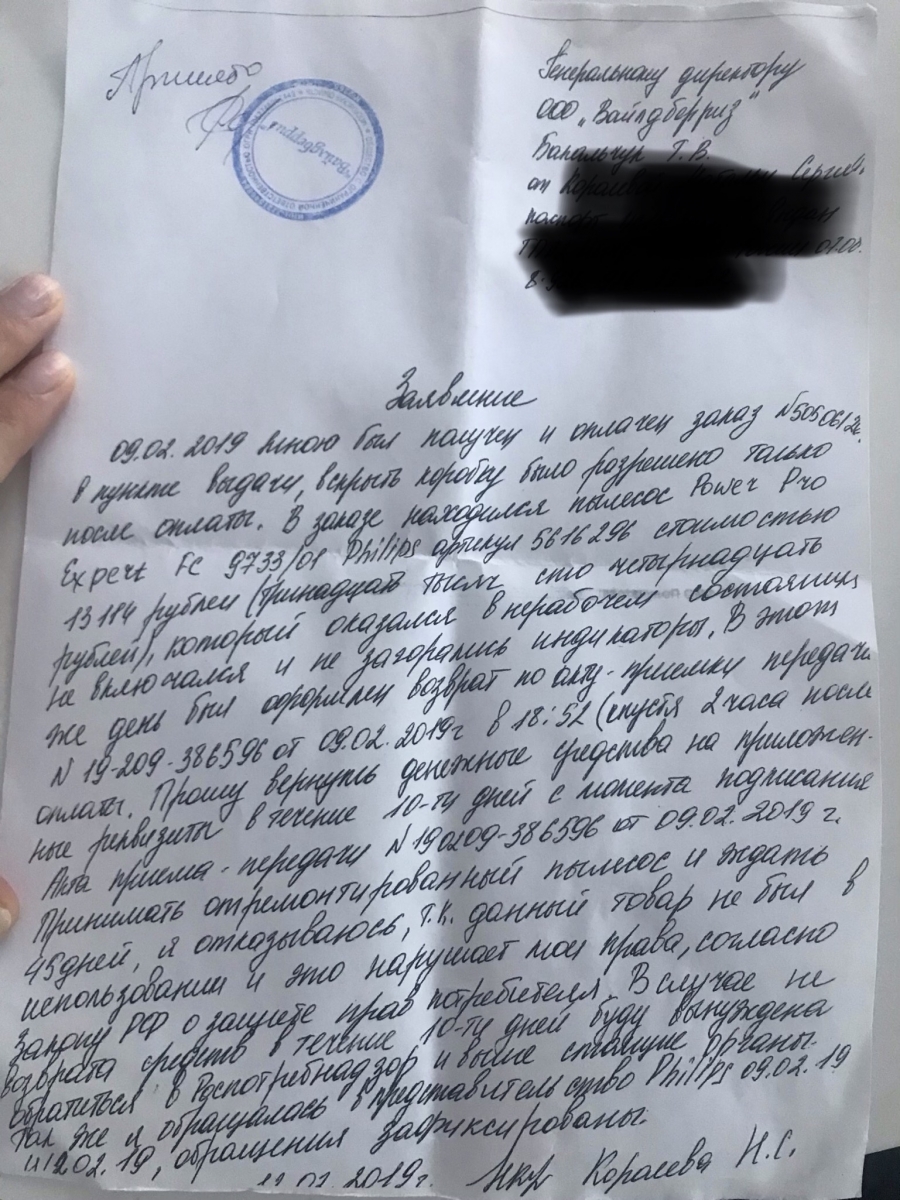 Принято
Генеральному директору
ООО "Вайлдберриз"
Бакальчук Т.В.
от
паспорт
8
"Вайлдберриз"
Заявление
09.02.2019 мною был получен и оплачен заказ №5050612
в пункте выдачи, вскрыть коробку было разрешено только
после оплаты. В заказе находился пылесос Power Pro
Expert FC 9733/01 Philips артикул 5616296 стоимостью
13114 рублей (тринадцать тысяч сто четырнадцать
рублей), который оказался в нерабочем состоянии,
не включался и не загорались индикаторы. В этот
же день был оформлен возврат по акту-приемки передачи
N 19-209-386596 от 09.02.2019г в 18:52 (спустя 2 часа после
оплаты. Прошу вернуть денежные средства на приложен-
ные реквизиты в течение 10-ти дней с момента подписания
Акта приема-передачи N190209-386596 от 09.02.2019г.
Принимать отремонтированный пылесос и ждать
45 дней, я отказываюсь, т.к. данный товар не был в
использовании и это нарушает мои права, согласно
Закону РФ о защите прав потребителя. В случае не
возврата средств в течение 10-ти дней буду вынуждена
обратиться в Роспотребнадзор и выше стоящие органы.
Так же я обращалась в представительство Philips 09.02.19
и 12.02.19, обращения зафиксированы.
2019г. Королева Н.С.